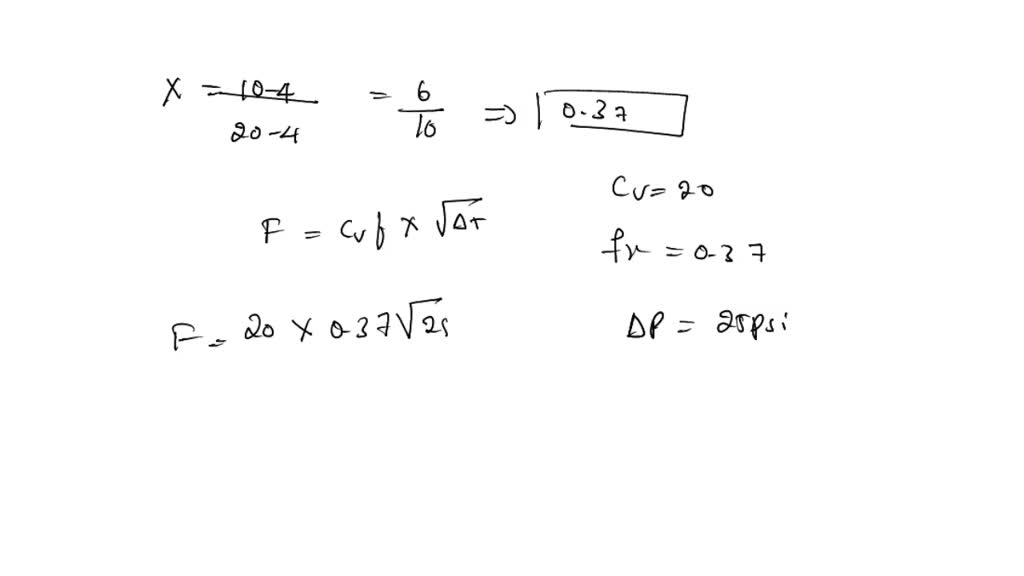 X = 10-4 / 20-4 = 6 / 10 => 0.37
Cv = 20
F = Cv f × √ΔP
fx = 0.37
F = 20 × 0.37 √25
ΔP = 25psi